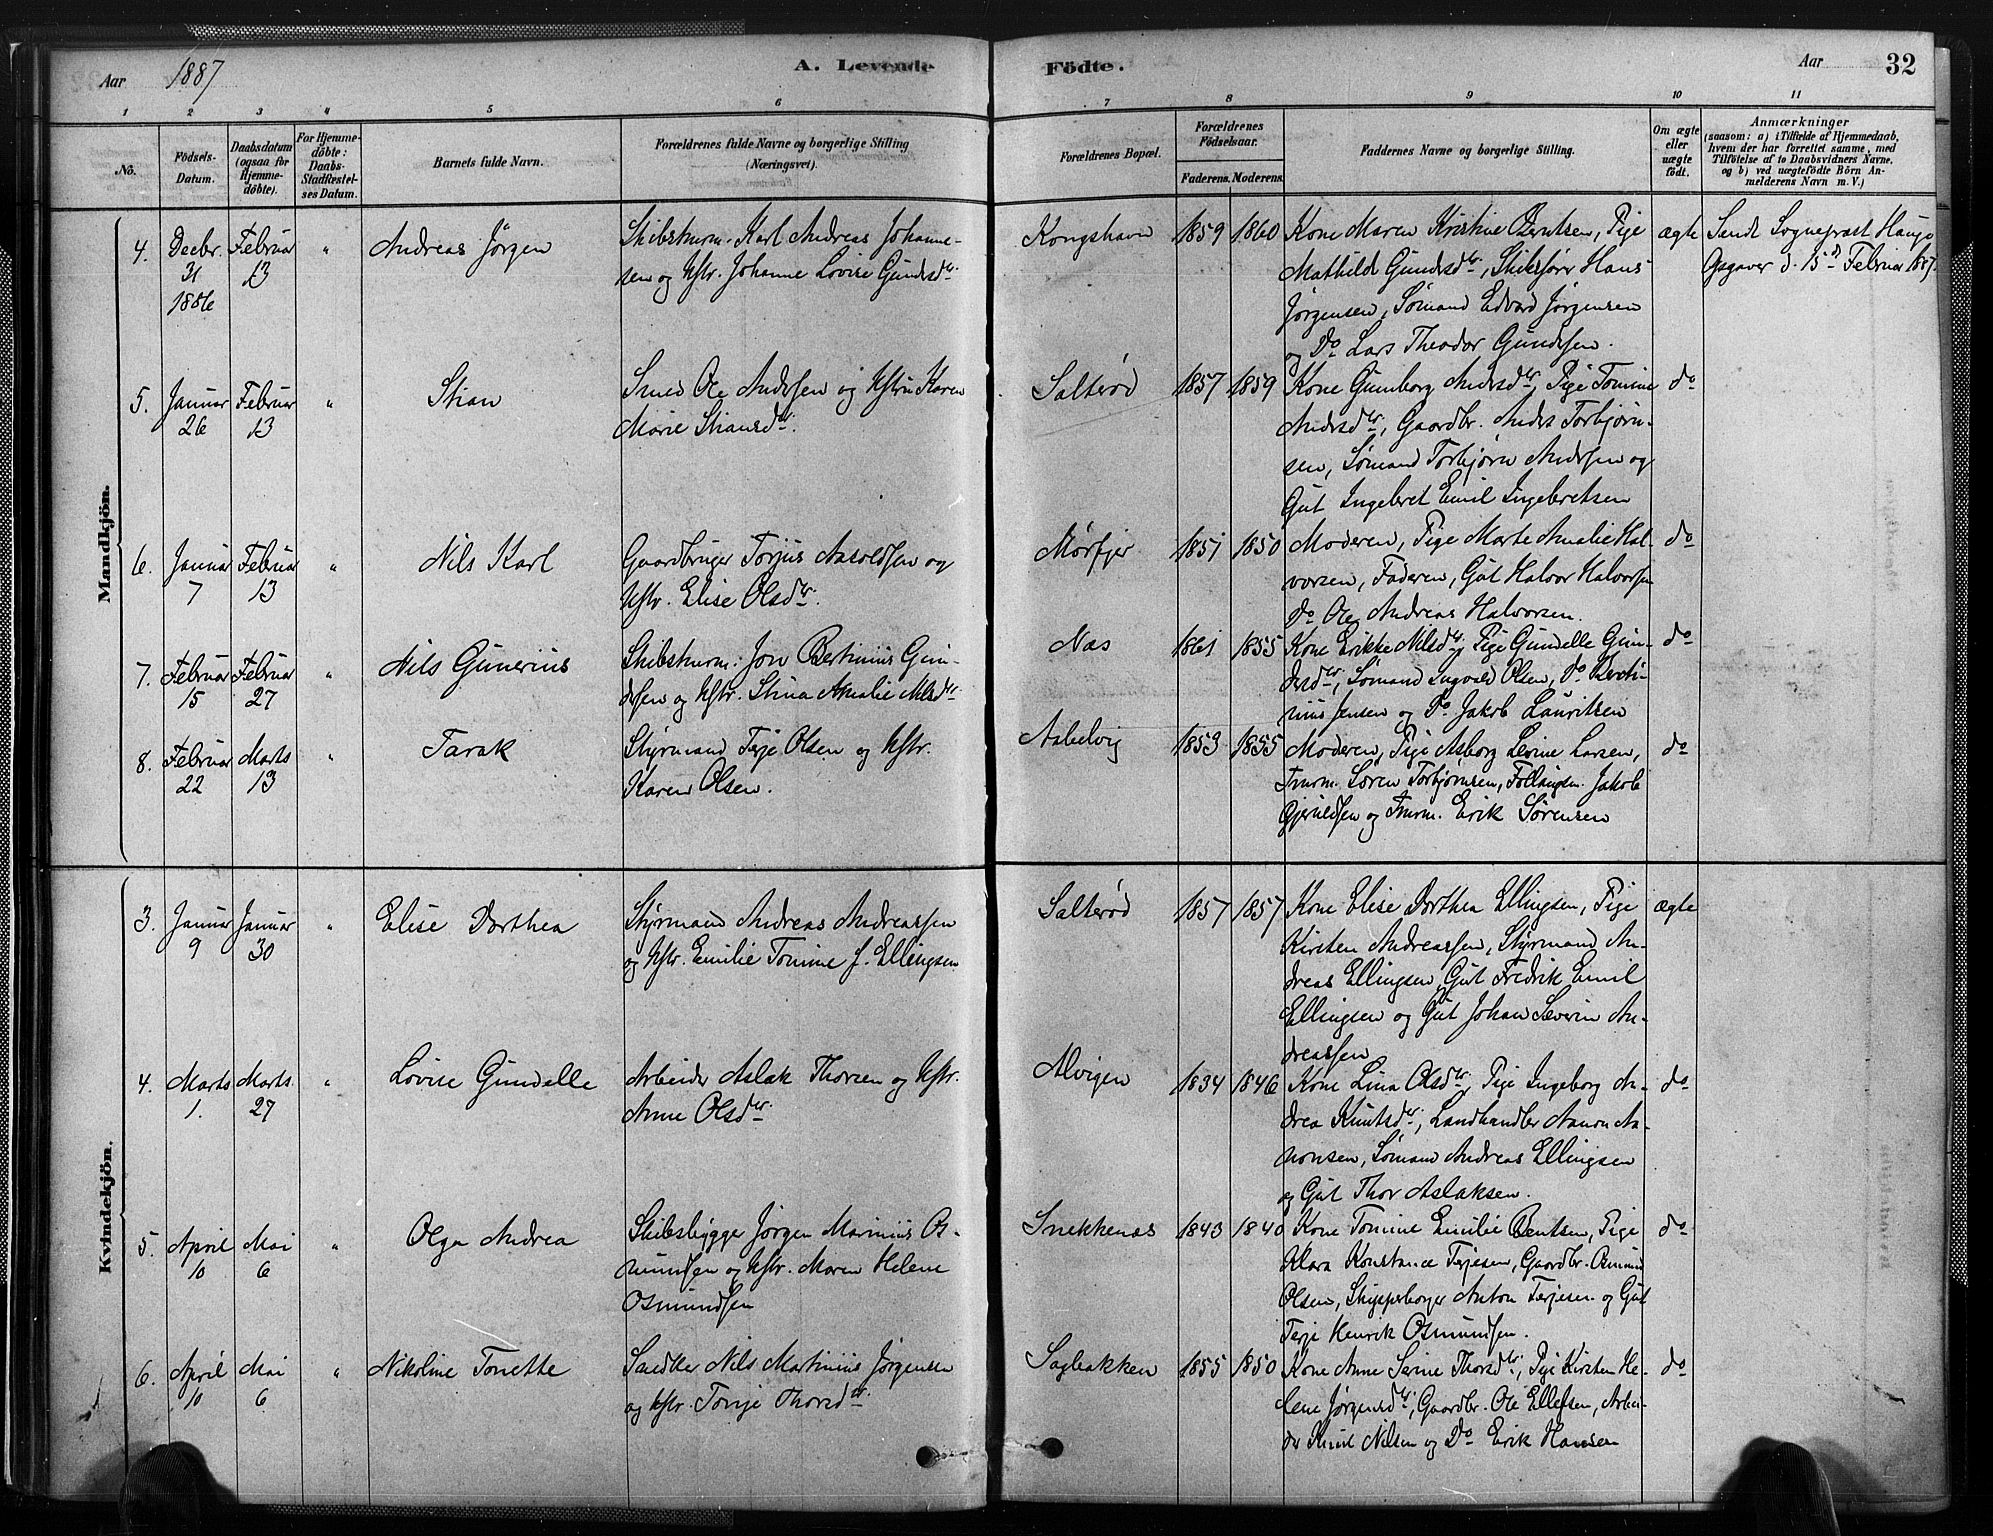 Aar 1887 A. Levende Födte. Aar 32
1 2 3 4 5 6 7 8 9 10 11
No.
Födsels-
Datum.
Daabsdatum
(ogsaa for
Hjemme-
döbte).
For Hjemme-
döbte:
Daabs-
Stadfestel-
ses Datum.
Barnets fulde Navn.
Forældrenes fulde Navne og borgerlige Stilling
(Næringsvei).
Forældrenes Bopæl.
Forældrenes
Födselsaar.
Faderens. Moderens.
Faddernes Navne og borgerlige Stilling.
Om ægte
eller
uægte
födt.
Anmærkninger
(saasom: a) i Tilfælde af Hjemmedaab,
hvem der har forrettet samme, med
Tilföielse af to Daabsvidners Navne,
og b) ved uægtefödte Börn An-
melderens Navn m. V.)
Mandkjön.
4. Decbr. 31 1886 Februar 13 " Andreas Jörgen
Skibstmrm. Karl Andreas Johanne-
sen og Hstr. Johanne Lovise Gundersdtr.
Kongshavn 1859 1860
Kone Maren Kristine Berntsen, Pige
Mathilde Gundersdtr, Skibsförer Hans
Jörgensen, Sömand Edvard Jörgensen
og Do Lars Theodor Gundersen.
ægte
Sendt Sogneprest Hauge
Opgaver d. 15d Februar 1887.
5. Januar 26 Februar 13 " Stian
Smed Ole Andersen og Hstru Karen
Marie Stiansdtr.
Salteröd 1857 1859
Kone Gunborg Andersdtr, Pige Tomine
Andersdtr, Gaardbr. Anders Torbjörn-
sen, Sömand Torbjörn Andersen og
Gut Ingebret Emil Ingebretsen
do
6. Januar 7 Februar 13 " Nils Karl
Gaardbruger Torjus Aasoldsen og
Hstr. Elise Olsdtr.
Mörfjer 1851 1850
Moderen, Pige Marte Amalie Hal-
vorsen, Faderen, Gut Halvor Halvorsen
do Ole Andreas Halvorsen.
do
7. Februar 15 Februar 27 " Nils Gunerius
Skibstmrm. Jon Bertinius Gun-
dersen og Hstr. Stina Amalie Nilsdtr
Næs 1861 1855
Kone Erikke Nilsdtr, Pige Gundelle Gun-
dersdtr, Sömand Ingvald Olsen, Do Berti-
nius Jensen og Do Jakob Lauritsen
do
8. Februar 22 Marts 13 " Tarak
Styrmand Terje Olsen og Hstr.
Karen Olsen.
Asbelvig 1853 1855
Moderen, Pige Asborg Levine Larsen,
Tmrm. Sören Torbjörnsen, Jakob
Gjeruldsen og Tmrm. Erik Sörensen
do
Kvindekjön.
3. Januar 9 Januar 30 " Elise Dorthea
Styrmand Andreas Andreassen
og Hstr. Emilie Tomine f. Ellingsen
Salteröd 1857 1857
Kone Elise Dorthea Ellingsen, Pige
Kirsten Andreassen, Styrmand An-
dreas Ellingsen, Gut Fredrik Emil
Ellingsen og Gut Johan Severin An-
dreassen
ægte
4. Marts 1. Marts 27 " Lovise Gundelle
Arbeider Aslak Thorsen og Hstr.
Anne Olsdtr.
Alvigen 1834 1846
Kone Lina Olsdtr, Pige Ingeborg An-
drea Knutsdtr, Landhandler Aanon Aa-
nonsen, Sömand Andreas Ellingsen
og Gut Thor Aslaksen.
do
5. April 10 Mai 6 " Olga Andrea
Skibsbygger Jörgen Marinius Os-
mundsen og Hstr. Maren Helene
Osmundsen
Snekkenæs 1843 1840
Kone Tomine Emilie Bentsen, Pige
Klara Konstance Terjesen, Gaardbr. Osmund
Olsen, Skipsbygger Anton Terjesen og Gut
Terje Henrik Osmundsen.
do
6. April 10 Mai 6 " Nikoline Tonette
Snedker Nils Martinius Jörgensen
og Hstr. Tonje Thorsdtr.
Sagbakken 1855 1850
Kone Anne Serine Thorsdtr, Pige Kirsten He-
lene Jörgensdtr, Gaardbr. Ole Ellefsen, Arbei-
der Knud Nilsen og Do Erik Hansen
do